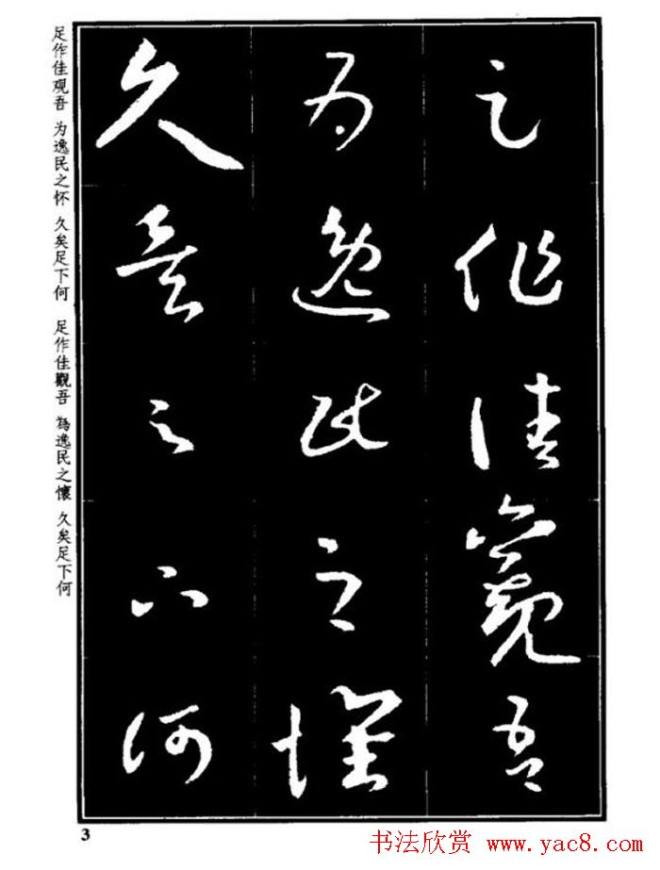 足作佳觀吾
為逸民之懷
久矣足下何
足作佳观吾 为逸民之怀 久矣足下何
足作佳觀吾 為逸民之懷 久矣足下何
3
书法欣赏 www.yac8.com